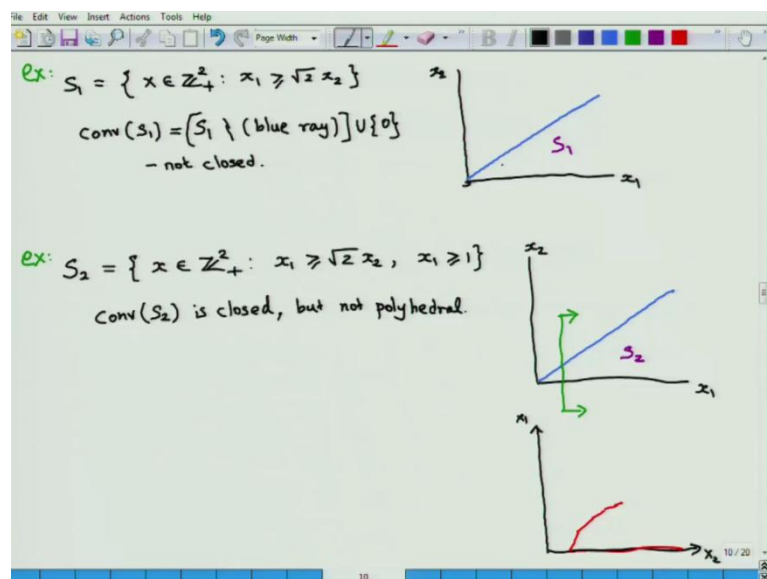 File Edit View Insert Actions Tools Help
Page Width
B I
ex: S₁ = { x ∈ ℤ²₊ : x₁ ≥ √2 x₂ }
conv(S₁) = [S₁ \ (blue ray)] ∪ {0}
- not closed.
x₂
S₁
x₁
ex: S₂ = { x ∈ ℤ²₊ : x₁ ≥ √2 x₂ , x₁ ≥ 1 }
conv(S₂) is closed, but not polyhedral.
x₂
S₂
x₁
x₁
x₂
10 / 20
10